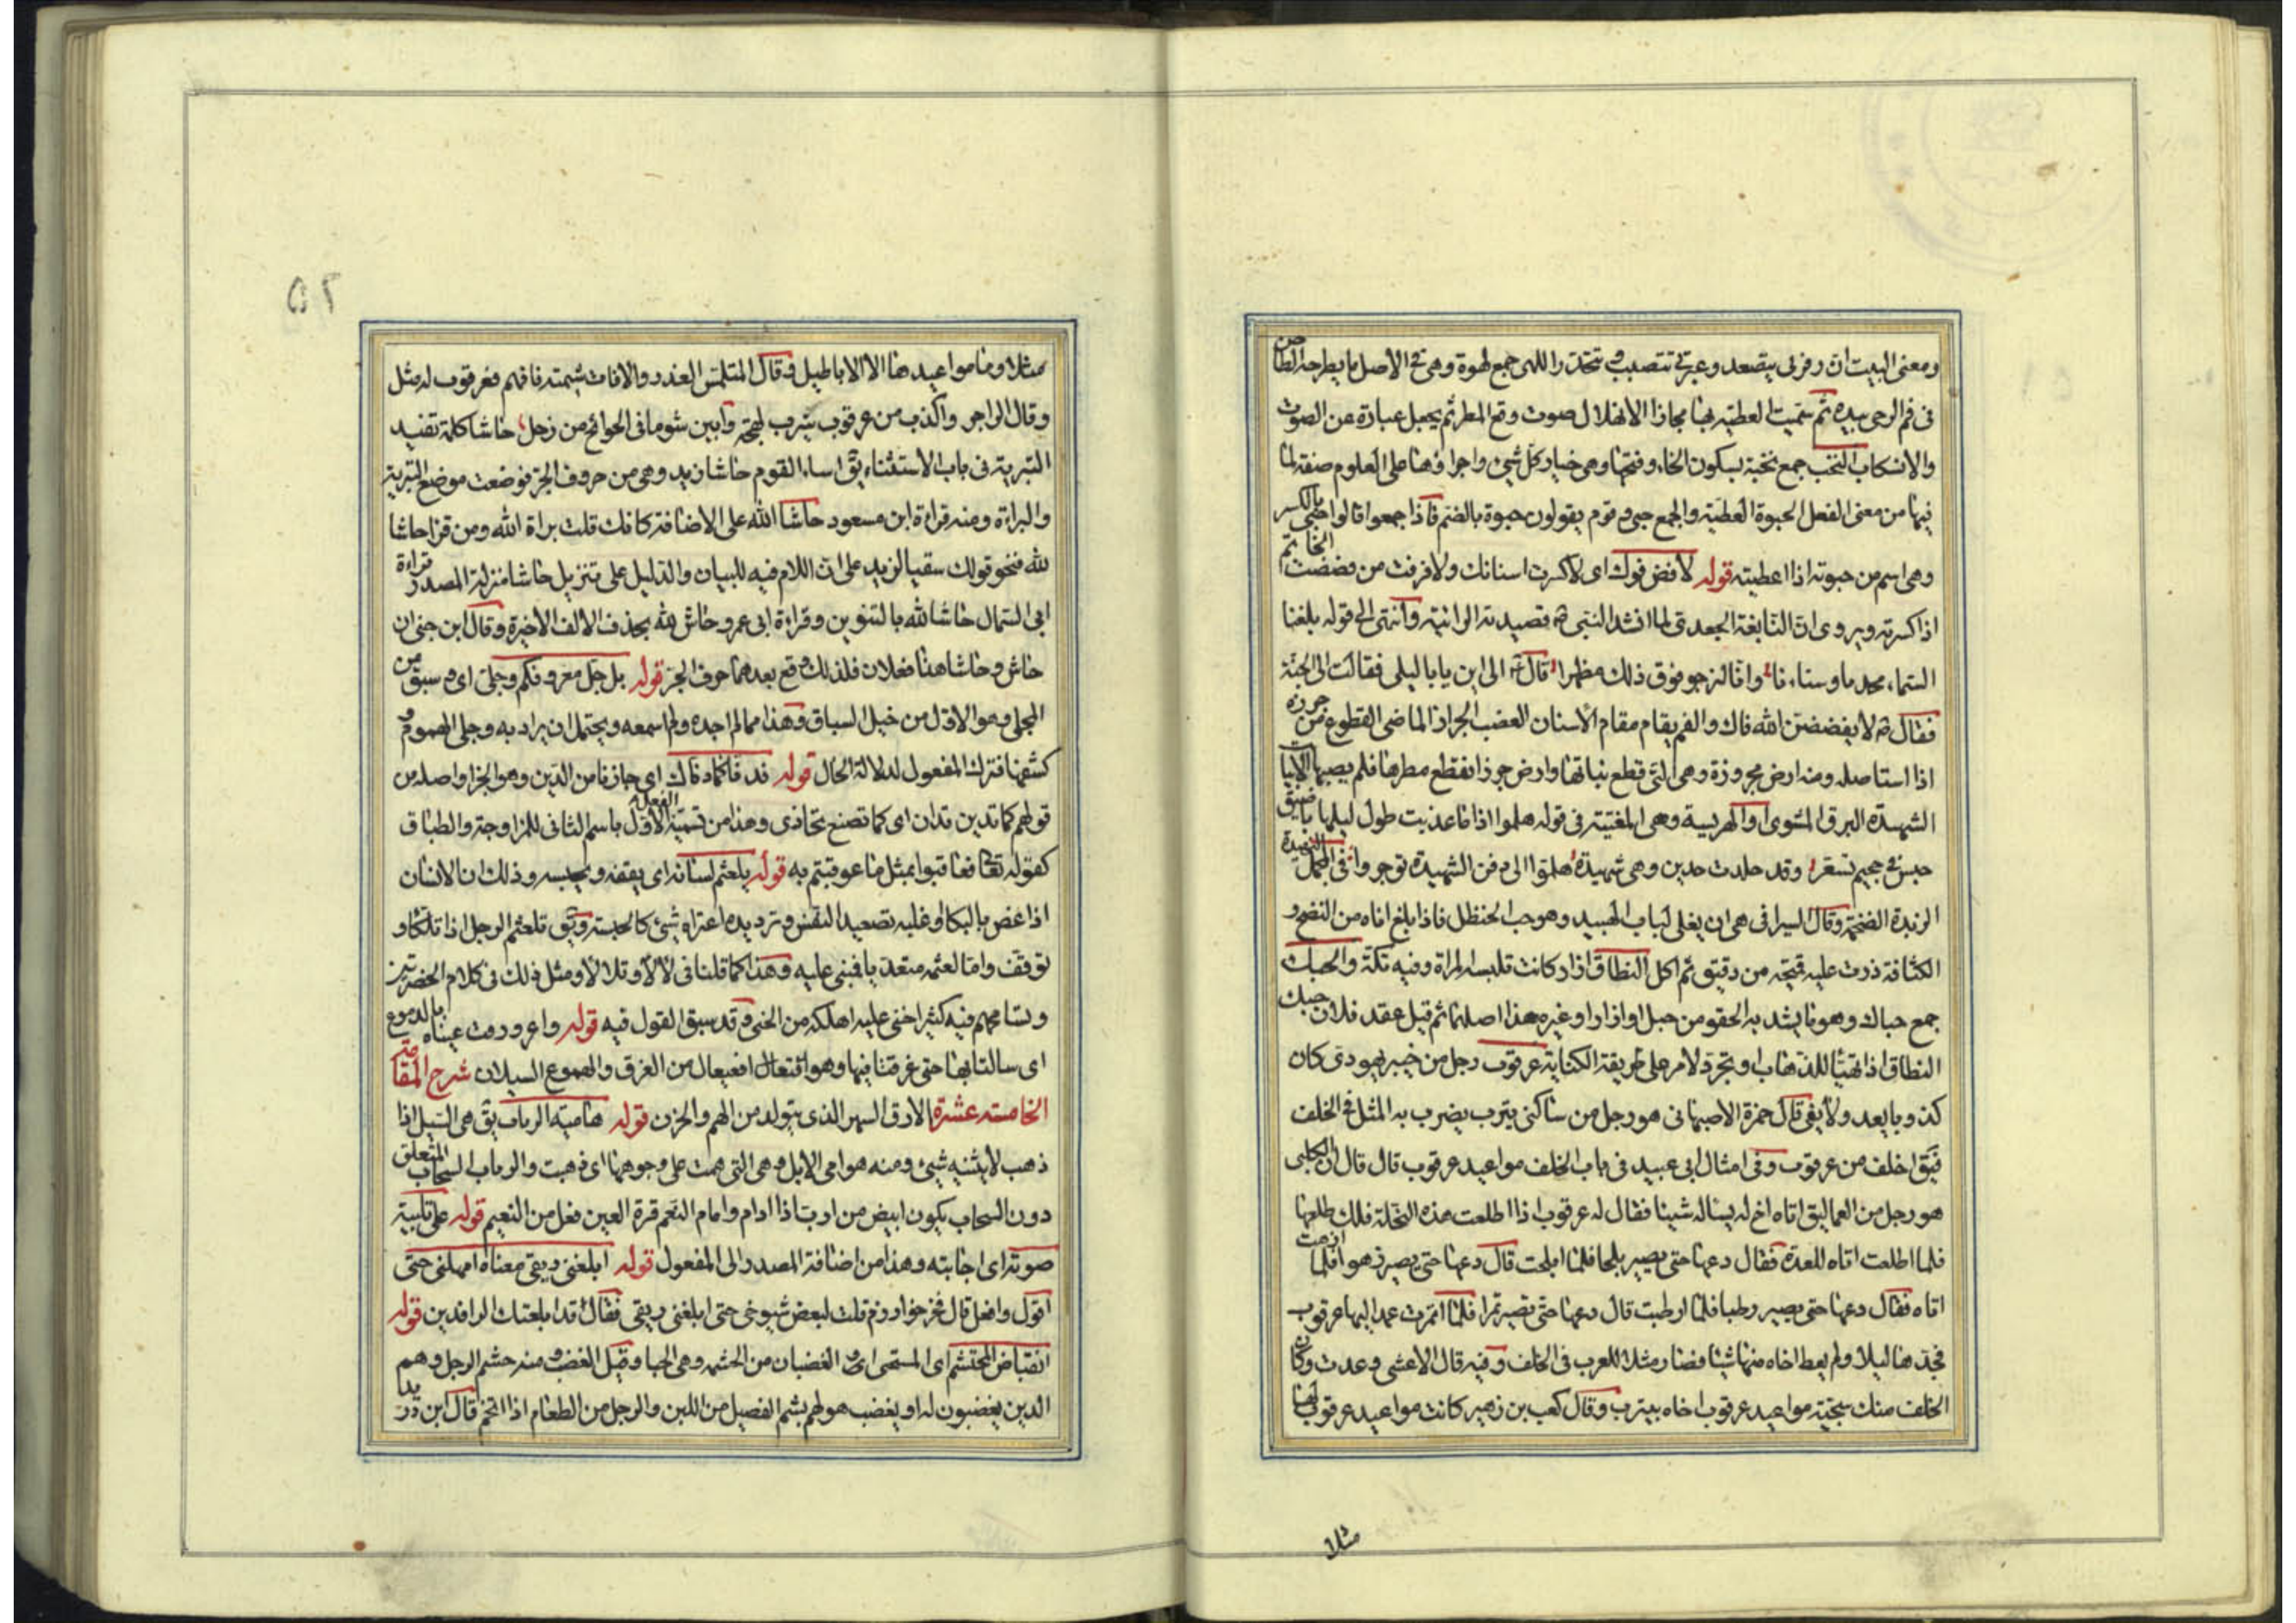 ومعنى البيت ان زفرتى يتصعد وعبرتى تتصبب وتتحدر واللهى جمع لهوة وهى فى الاصل ما يطرحه الطاحن
فى فم الرحى بيده ثم سميت العطية بها مجازا الانهلال صوت وقع المطر ثم يجعل عبارة عن الصوت
والانسكاب النخب جمع نخبة بسكون الخاء وفتحها وهى خيار كل شئ واجراؤها على العلوم صفة لما
فيها من معنى الفعل الحبوة العطية والجمع حبى وقوم يقولون حبوة بالضم فاذا جمعوا قالوا حبى بالكسر
وهى اسم من حبوته اذا اعطيته قوله لا فض فوك اى لا كسرت اسنانك ولا فرقت من فضضت الخاتم
اذا كسرته ويروى ان النابغة الجعدى لما انشد النبى قصيدته الرائية وانتهى الى قوله بلغنا
السماء مجدنا وسناءنا وانا لنرجو فوق ذلك مظهرا قال الى اين يا با ليلى فقال الى الجنة
فقال لا يفضضن الله فاك والفم يقام مقام الاسنان العضب الجراز الماضى القطوع من جرزه
اذا استاصله ومنه ارض مجروزة وهى التى قطع نباتها وارض جرز انقطع مطرها فلم يصبها
الشهيدة البرق المشوى والهريسة وهى المغنية فى قوله هلموا اذا ما عذبت طول ليلها باضيق
حبس فى جحيم تسعر وقد جلدت حدين وهى شهيدة هلموا الى دفن الشهيدة توجروا وفى المجمل النهيدة
الزبدة الضخمة وقال السيرافى هى ان يغلى لباب الهبيد وهو حب الحنظل فاذا بلغ اناه من النضج و
الكثافة ذرت عليه قميحة من دقيق ثم اكل النطاق ازار كانت تلبسه المراة وفيه تكة والحبك
جمع حباك وهو ما يشد به الحقو من حبل او ازار او غيره هذا اصلها ثم قيل عقد فلان حبك
النطاق اذا تهيا للذهاب وتجرد لامر على طريقة الكناية عرقوب رجل من خيبر يهودى كان
كذوبا يعد ولا يفى قال حمزة الاصبهانى هو رجل من ساكنى يترب يضرب به المثل فى الخلف
فيق اخلف من عرقوب وفى امثال ابى عبيد فى باب الخلف مواعيد عرقوب قال قال ابن الكلبى
هو رجل من العماليق اتاه اخ له يساله شيئا فقال له عرقوب اذا اطلعت هذه النخلة فلك طلعها
فلما اطلعت اتاه للعدة فقال دعها حتى يصير بلحا فلما ابلحت قال دعها حتى يصير زهوا فلما ازهت
اتاه فقال دعها حتى يصير رطبا فلما ارطبت قال دعها حتى تصير تمرا فلما اتمرت عمد اليها عرقوب
فجدها ليلا ولم يعط اخاه منها شيئا فصار مثلا للعرب فى الخلف وفيه قال الاعشى وعدت وكان
الخلف منك سجية مواعيد عرقوب اخاه بيترب وقال كعب بن زهير كانت مواعيد عرقوب لها
مثلا
٥٢
مثلا وما مواعيدها الا الاباطيل وقال المتلمس الغدر والافات شيمته فافهم فعرقوب له مثل
وقال الراجز واكذب من عرقوب يترب لهجة وابين شوما فى الحوائج من زحل حاشا كلمة تفيد
التبرية فى باب الاستثناء يق اساء القوم حاشا زيد وهى من حروف الجر فوضعت موضع التبرية
والبراءة ومنه قراءة ابن مسعود حاشا الله على الاضافة كانك قلت براة الله ومن قرا حاشا
لله فنحو قولك سقيا لزيد على ان اللام فيه للبيان والدليل على تنزيل حاشا منزلة المصدر قراءة
ابى السمال حاشا لله بالتنوين وقراءة ابى عمرو حاش لله بحذف الالف الاخيرة وقال ابن جنى ان
حاش وحاشا هنا فعلان فلذلك وقع بعدهما حرف الجر قوله بل جل معروفكم وجلى اى سبق من
المجلى وهو الاول من خيل السباق وهذا مما لم اجده ولم اسمعه ويحتمل ان يراد به وجلى الهموم و
كشفها فترك المفعول لدلالة الحال قوله فدناكما دناك اى جازنا من الدين وهو الجزا واصله من
قولهم كما تدين تدان اى كما تصنع تجازى وهذا من تسمية الفعل الاول باسم الثانى للمزاوجة والطباق
كقوله تعا فعاقبوا بمثل ما عوقبتم به قوله يلعثم لسانه اى يقفه ويحبسه وذلك ان الانسان
اذا غص بالبكا وغلبه تصعيد النفس وترديده اعتراه شئ كالحبسة ويق تلعثم الرجل اذا تلكا و
توقف واما لعثمه متعديا فبنى عليه وهذا كما قلنا فى لالا وتلالا ومثل ذلك فى كلام الحضريين
وتسامحهم فيه كثير اخنى عليه اهلكه من الخنى وقد سبق القول فيه قوله واغرورقت عيناه بالدموع
اى سالتا بها حتى غرقتا فيها وهو افتعال افعيعال من الغرق والهموع السيلان شرح المقامة
الخامسة عشرة الارق السهر الذى يتولد من الهم والحزن قوله هامية الرباب يق همى السيل اذا
ذهب لا يثنيه شئ ومنه هوامى الابل وهى التى همت على وجوهها اى ذهبت والرباب السحاب المتعلق
دون السحاب يكون ابيض من ارب اذا ادام وامام النعم قرة العين فعل من النعيم قوله على تلبية
صوته اى اجابته وهذا من اضافة المصدر الى المفعول قوله ابلعنى ريقى معناه امهلنى حتى
اقول وافعل قال فخر خوارزم قلت لبعض شيوخى حتى ابلغنى ريقى فقال قد ابلعتك الرافدين قوله
انقباض المحتشم اى المستحى او الغضبان من الحشمة وهى الحيا وقيل الغضب ومنه حشم الرجل وهم
الذين يغضبون له او يغضب هو لهم بشم الفصيل من اللبن والرجل من الطعام اذا اتخم قال ابن دريد